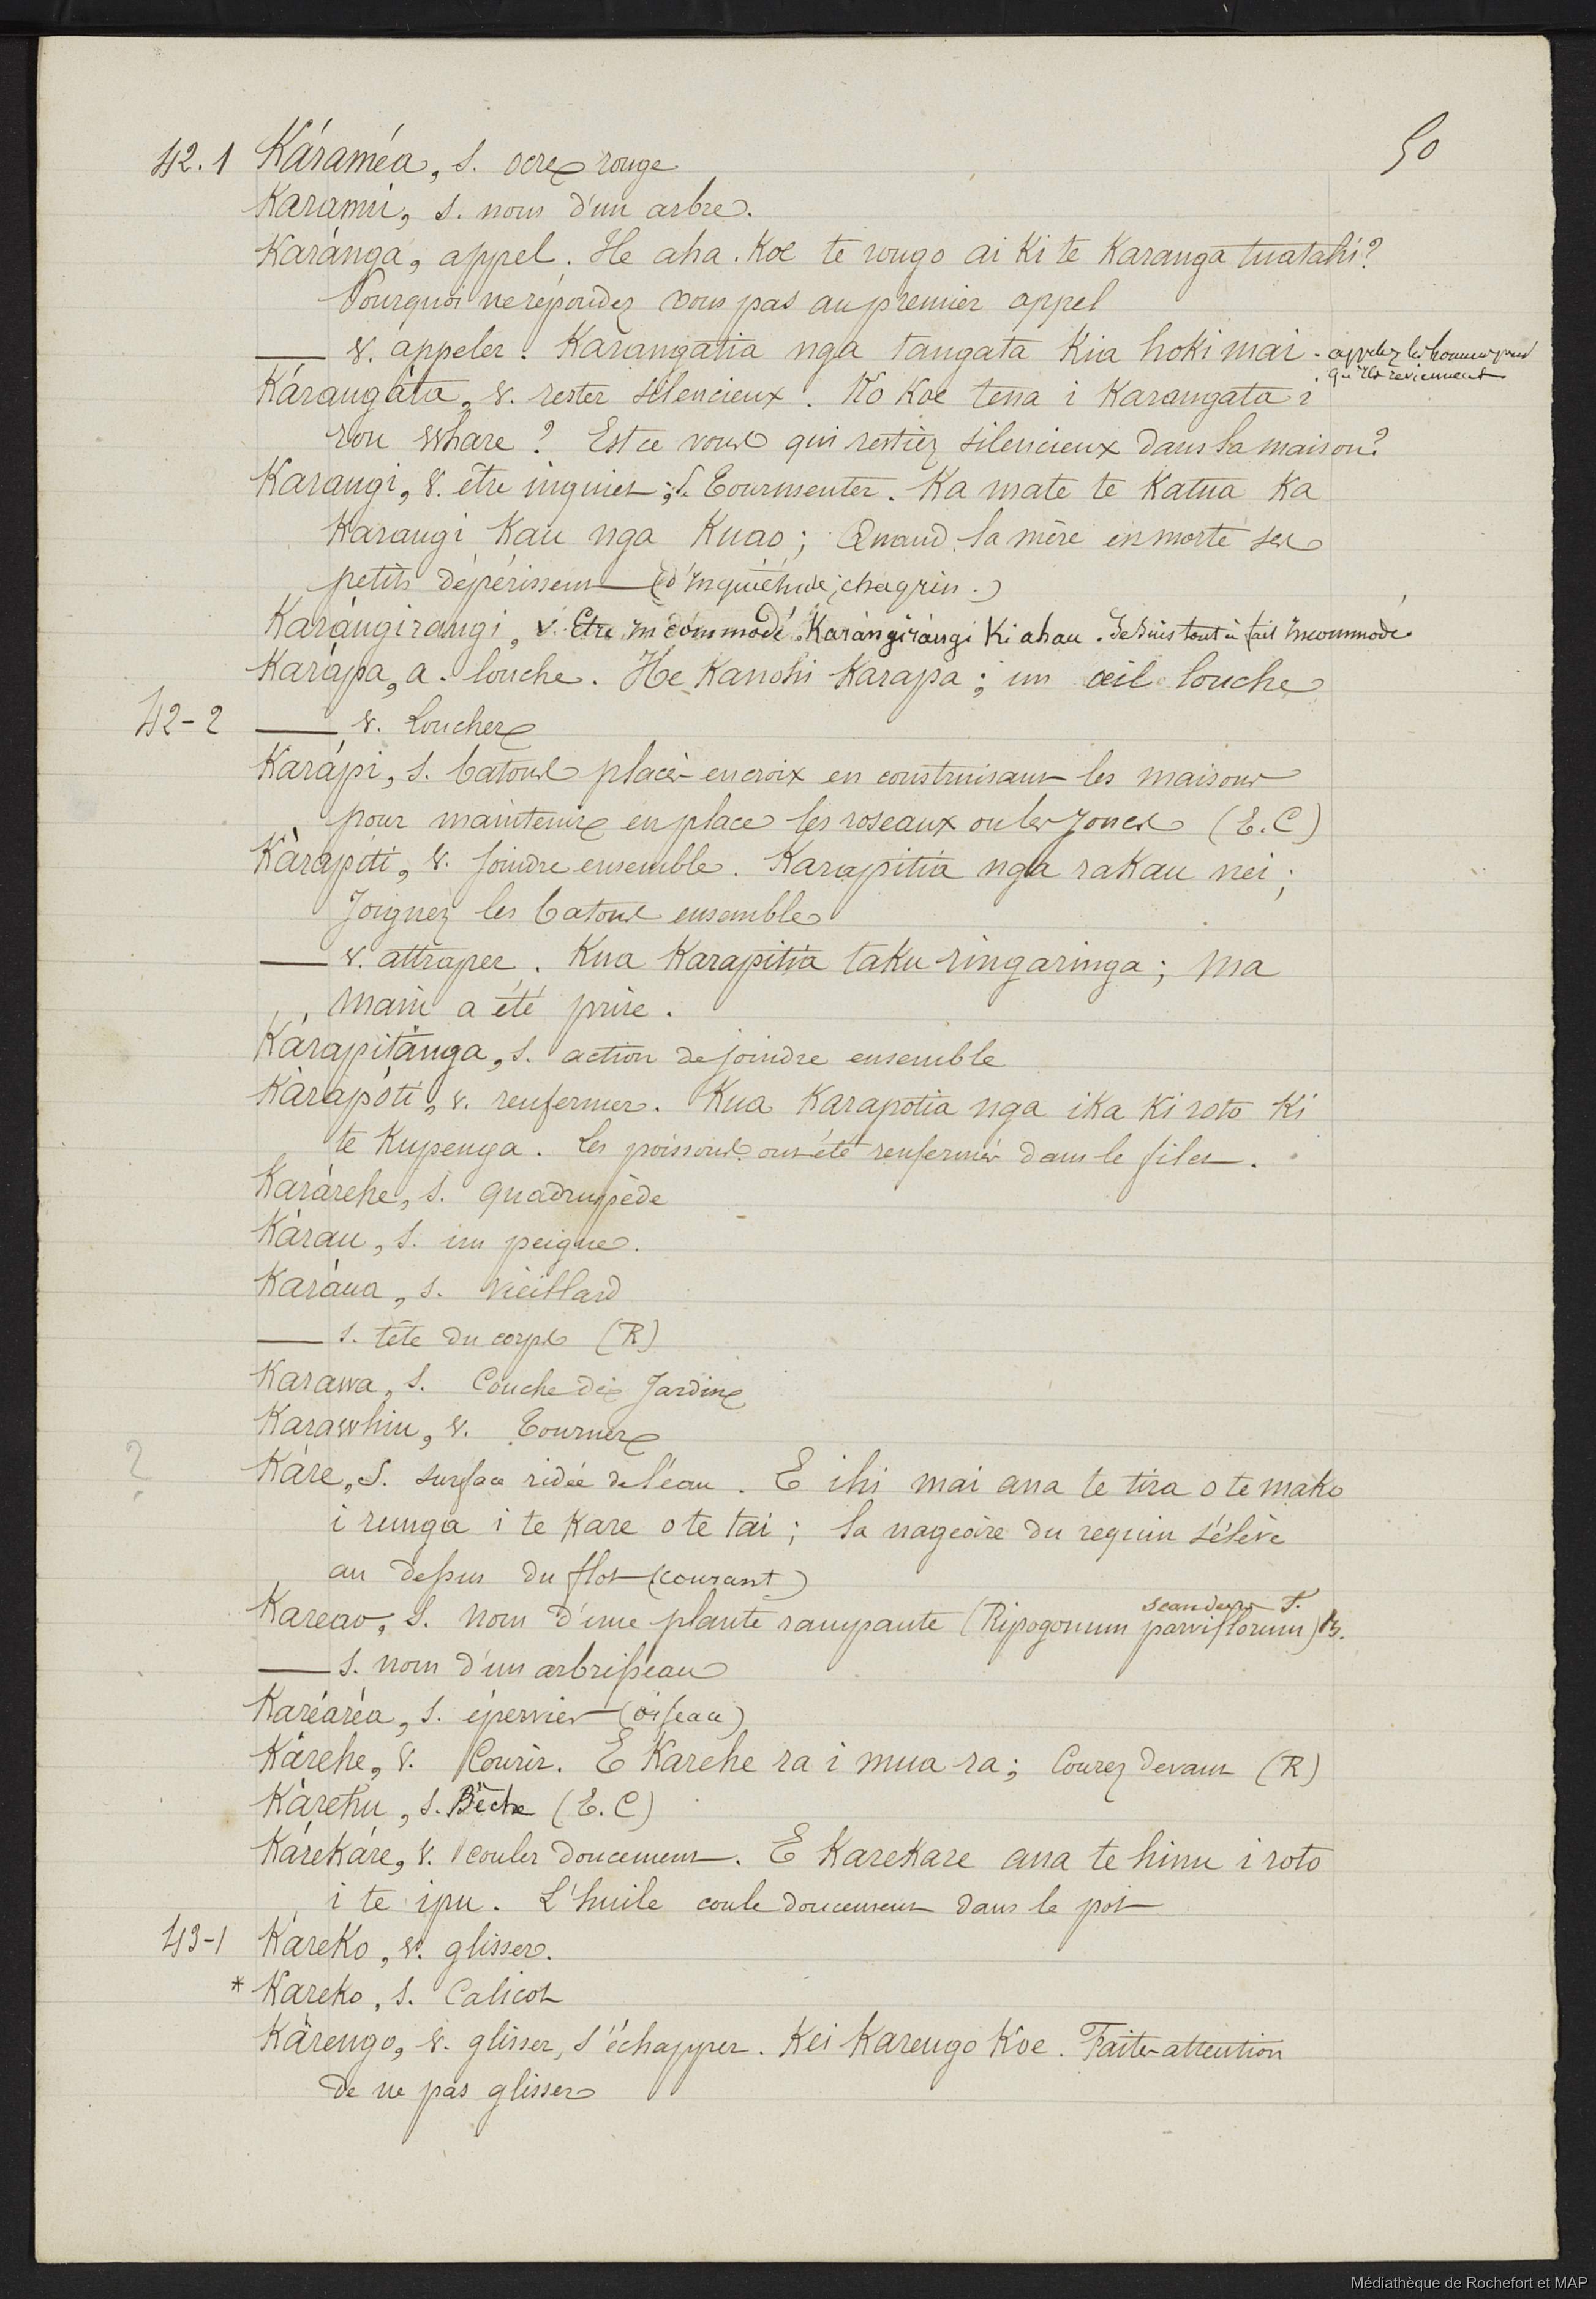 50
42.1 Káraméa, s. ocre rouge
Karamú, s. nom d'un arbre.
Karánga, appel. He aha. Koe te rongo ai Ki te Karanga tuatahi?
Pourquoi ne répondez vous pas au premier appel
—— v. appeler. Karangatia nga tangata Kia hoki mai - appelez les hommes pour
qu'ils reviennent
Kárangáta, v. rester silencieux. Ko Koe tena i Karangata i
rou whare? Est ce vous qui restiez silencieux dans la maison?
Karangi, v. être inquiet; se Tourmenter. Ka mate te Katua Ka
Karangi Kau nga Kuao; Quand la mère est morte ses
petits dépérissent (d'inquiétude; chagrin.)
Karángirangi, v. Etre incommodé. Karángirángi Ki ahau. Je suis tout à fait incommodé.
Karápa, a. louche. He Kanohi Karapa; un œil louche
42-2 —— v. Loucher
Karápi, s. batons placés en croix en construisant les maisons
pour maintenir en place les roseaux ou les joncs (E.C)
Kàrapiti, v. joindre ensemble. Karapitia nga rakau nei;
Joignez les batons ensemble
—— v. attraper. Kua Karapitia taku ringaringa; ma
main a été prise.
Kárapitánga, s. action de joindre ensemble
Kàrapóti, v. renfermer. Kua Karapotia nga ika Ki roto Ki
te Kupenga. Les poissons ont été renfermés dans le filet.
Karárehe, s. quadrupède
Kàrau, s. un peigne.
Karáua, s. vieillard
—— s. tête du corps (R)
Karawa, s. Couche de Jardin
Karawhiu, v. Tourner
? Káre, s. surface ridée de l'eau. E ihi mai ana te tira o te mako
i runga i te Kare o te tai; la nageoire du requin s'élève
au dessus du flot (courant)
scandens F.
Kareao, s. nom d'une plante rampante (Ripogonum parviflorum) B.
—— s. nom d'un arbrisseau
Karéaréa, s. épervier (oiseau)
Kàrehe, v. Courir. E Karehe ra i mua ra; Courez devant (R)
Kàrehu, s. Bêche (E.C)
KáreKáre, v. couler doucement. E KareKare ana te hinu i roto
i te ipu. L'huile coule doucement dans le pot
43-1 KáreKo, v. glisser.
* Kareko, s. Calicot
Kàrengo, v. glisser, s'échapper. Kei Karengo Koe. Faites attention
de ne pas glisser
Médiathèque de Rochefort et MAP